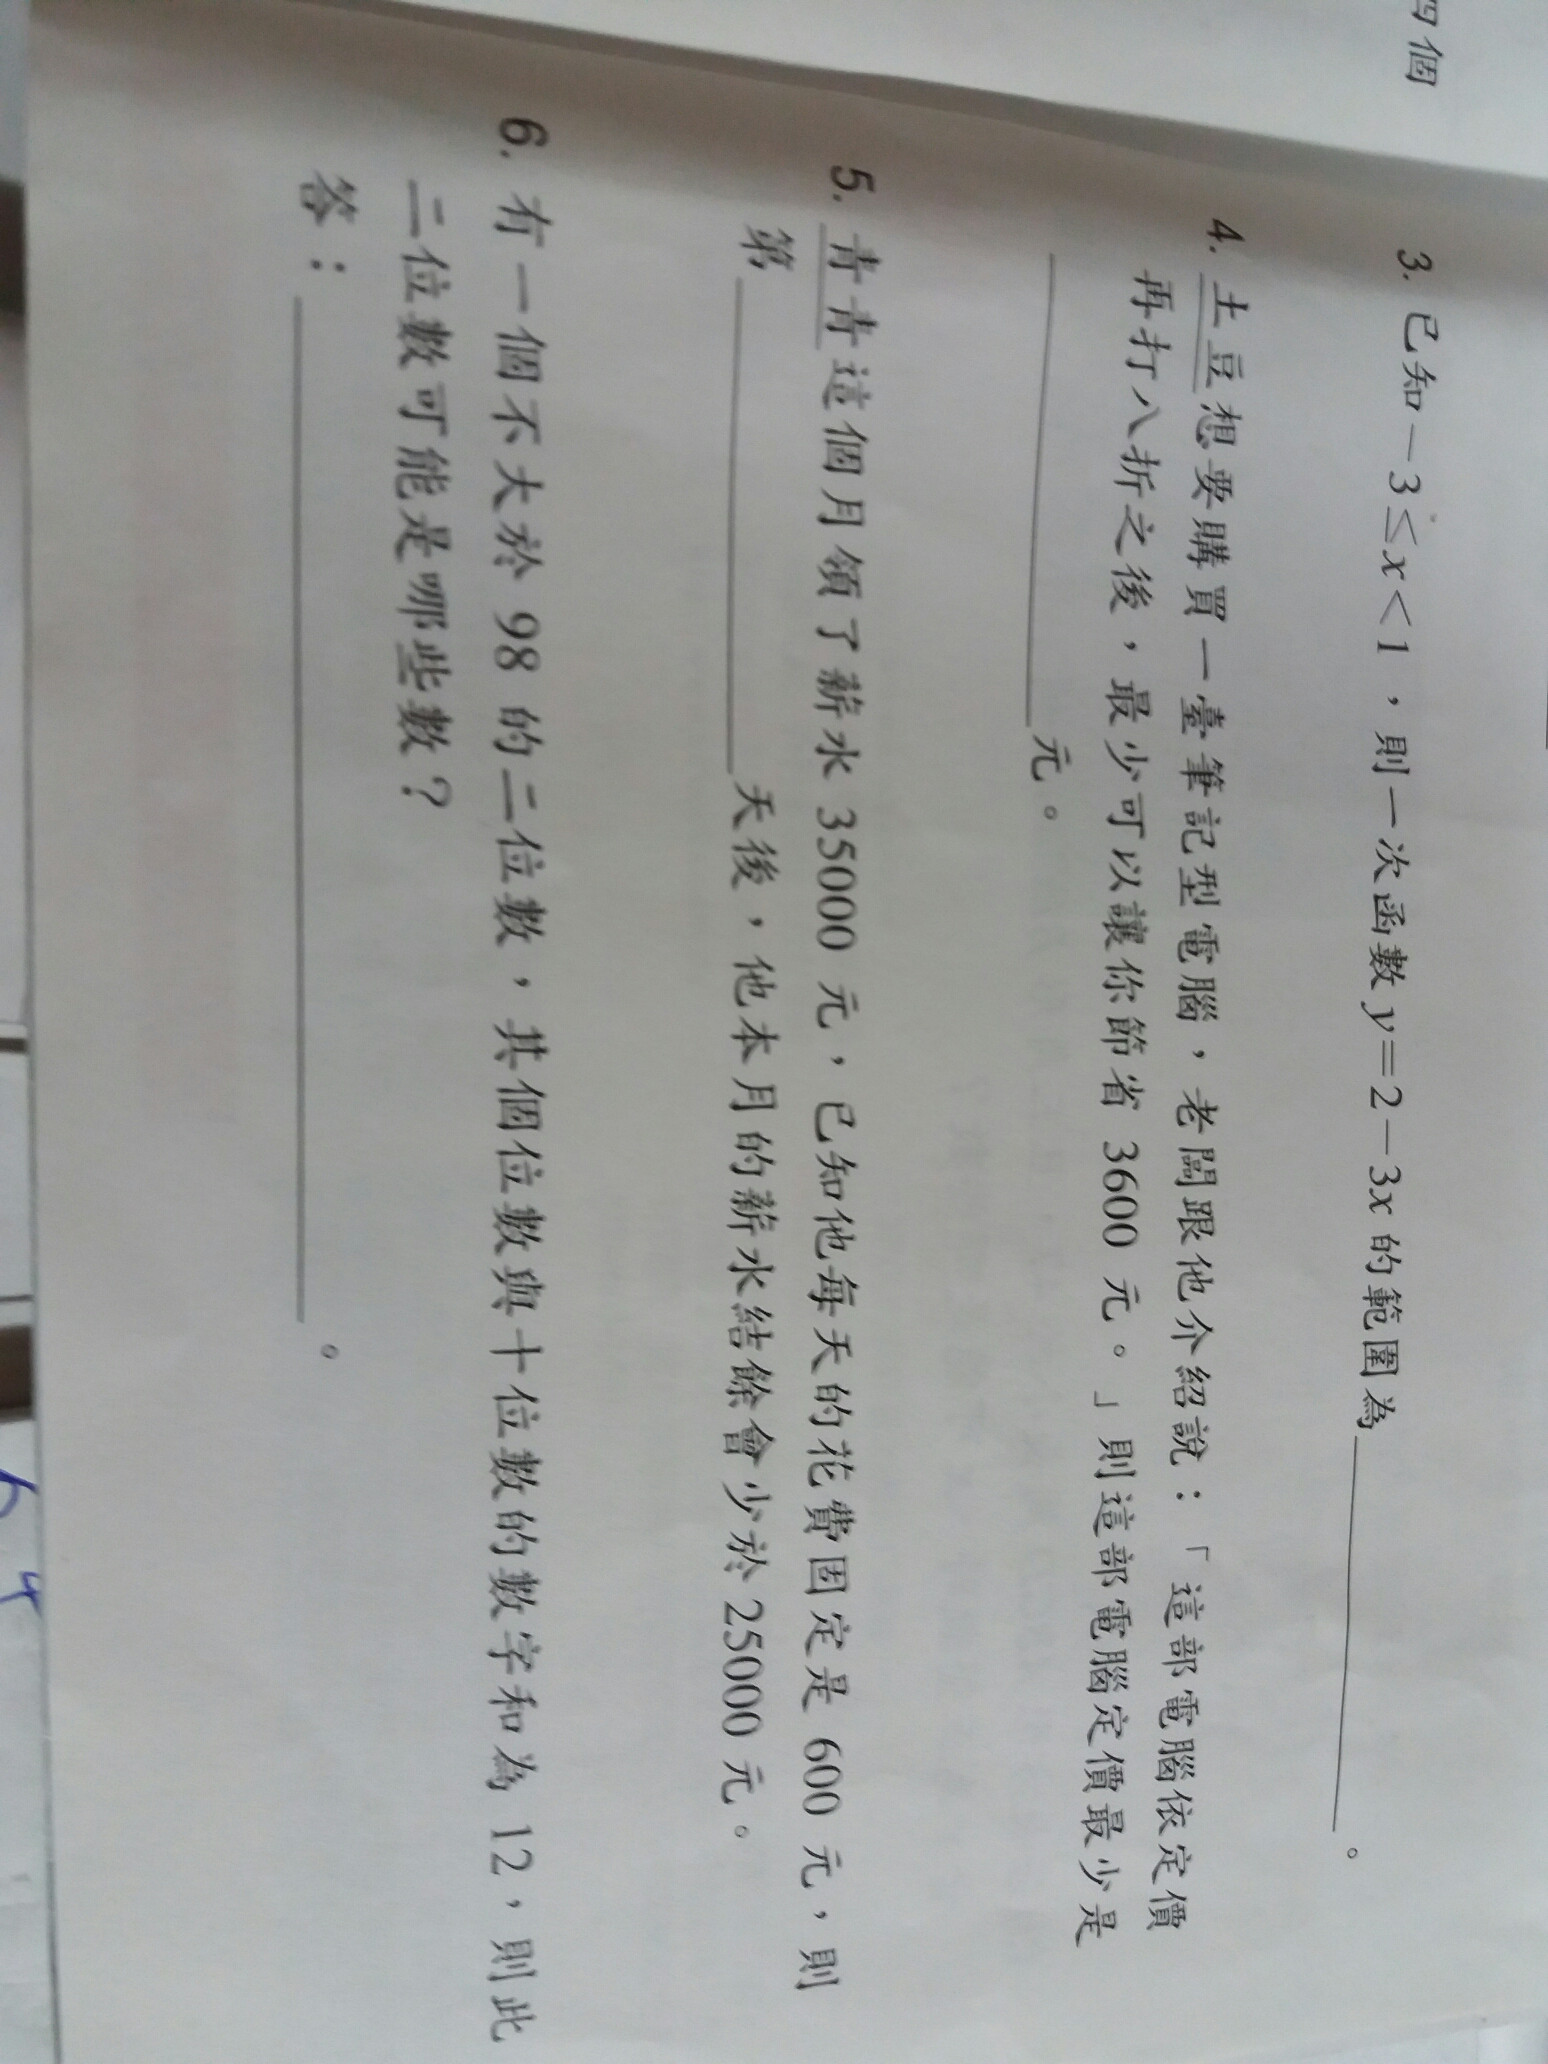 四個
3. 已知－3≤x＜1，則一次函數y＝2－3x的範圍為＿＿＿＿＿＿。
4. 土豆想要購買一臺筆記型電腦，老闆跟他介紹說：「這部電腦依定價
再打八折之後，最少可以讓你節省 3600 元。」則這部電腦定價最少是
＿＿＿＿＿＿元。
5. 青青這個月領了薪水 35000 元，已知他每天的花費固定是 600 元，則
第＿＿＿＿＿＿天後，他本月的薪水結餘會少於 25000 元。
6. 有一個不大於 98 的二位數，其個位數與十位數的數字和為 12，則此
二位數可能是哪些數？
答：＿＿＿＿＿＿＿＿＿＿＿＿。